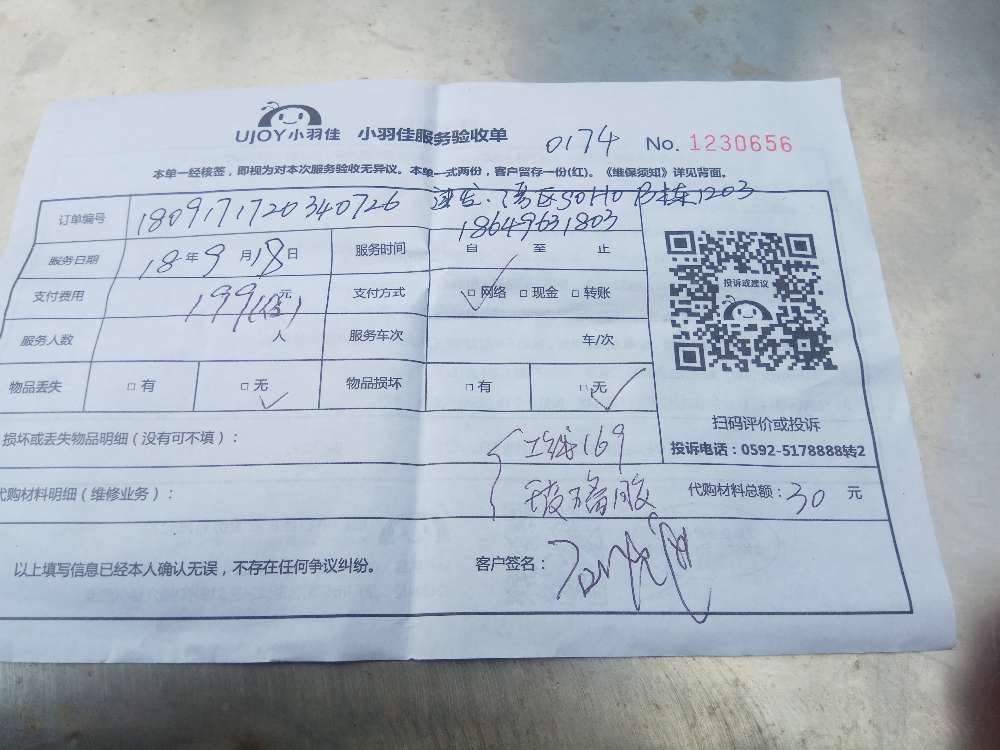 UJOY小羽佳 小羽佳服务验收单 0174 No. 1230656
本单一经核签，即视为对本次服务验收无异议。本单一式两份，客户留存一份(红)。《维保须知》详见背面。
订单编号 1809171720340726 湾区SOHO B栋1203
18649631803
服务日期 18年9月18日 服务时间 自 至 止
支付费用 199 元 支付方式 □网络 □现金 □转账
投诉或建议
服务人数 人 服务车次 车/次
物品丢失 □有 □无 物品损坏 □有 □无
扫码评价或投诉
损坏或丢失物品明细（没有可不填）： 169
投诉电话：0592-5178888转2
代购材料明细（维修业务）： 玻璃胶 代购材料总额：30 元
以上填写信息已经本人确认无误，不存在任何争议纠纷。 客户签名：